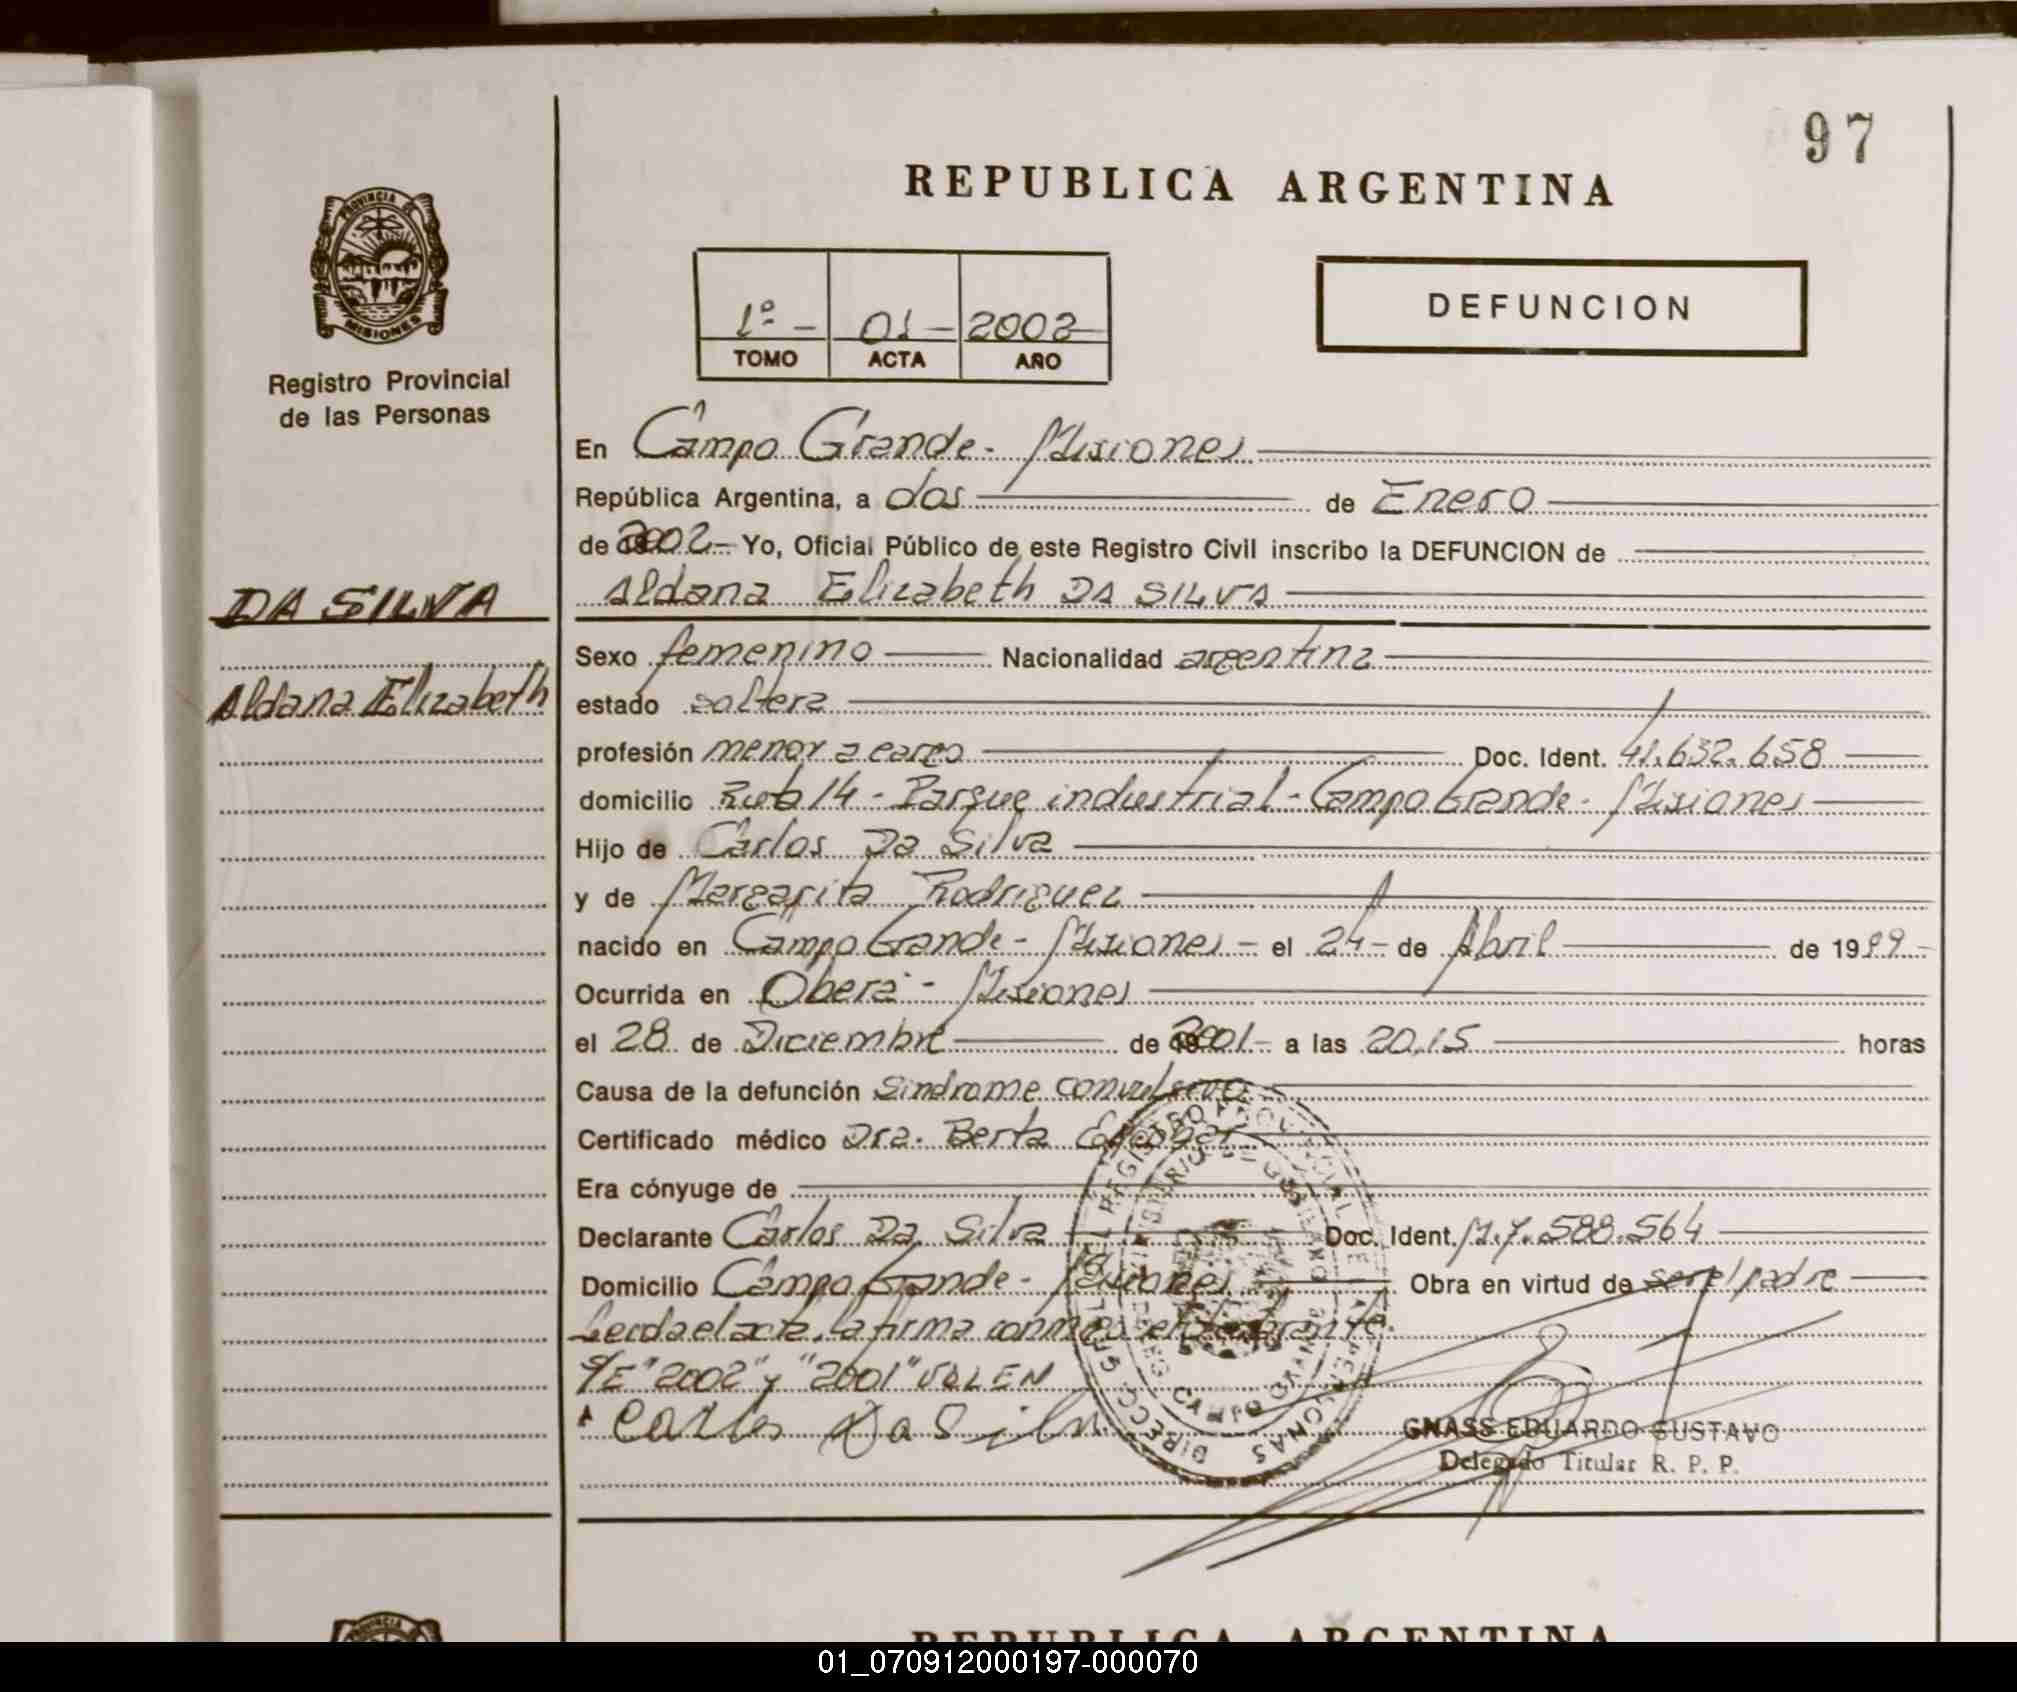 97
REPUBLICA ARGENTINA
PROVINCIA DE
MISIONES
Registro Provincial
de las Personas
1º - 01 - 2002
TOMO ACTA AÑO
DEFUNCION
En Campo Grande - Misiones
República Argentina, a dos de Enero
de 2002 - Yo, Oficial Público de este Registro Civil inscribo la DEFUNCION de
DA SILVA
Aldana Elizabeth DA SILVA
Sexo femenino Nacionalidad argentina
Aldana Elizabeth
estado soltera
profesión menor a cargo Doc. Ident. 41.632.658
domicilio Ruta 14 - Parque industrial - Campo Grande - Misiones
Hijo de Carlos Da Silva
y de Margarita Rodriguez
nacido en Campo Grande - Misiones - el 24 - de Abril de 1999 -
Ocurrida en Oberá - Misiones
el 28 de Diciembre de 2001 - a las 20,15 horas
Causa de la defunción Sindrome convulsivo
Certificado médico Dra. Berta
Era cónyuge de
Declarante Carlos Da Silva Doc. Ident. M.7.588.564
Domicilio Campo Grande - Misiones Obra en virtud de ser el padre
Leida el acta, la firma conmigo el declarante.
S/E "2002" y "2001" VALEN
Carlos Da Silva
GNASS EDUARDO GUSTAVO
Delegado Titular R. P. P.
REPUBLICA ARGENTINA
01_070912000197-000070